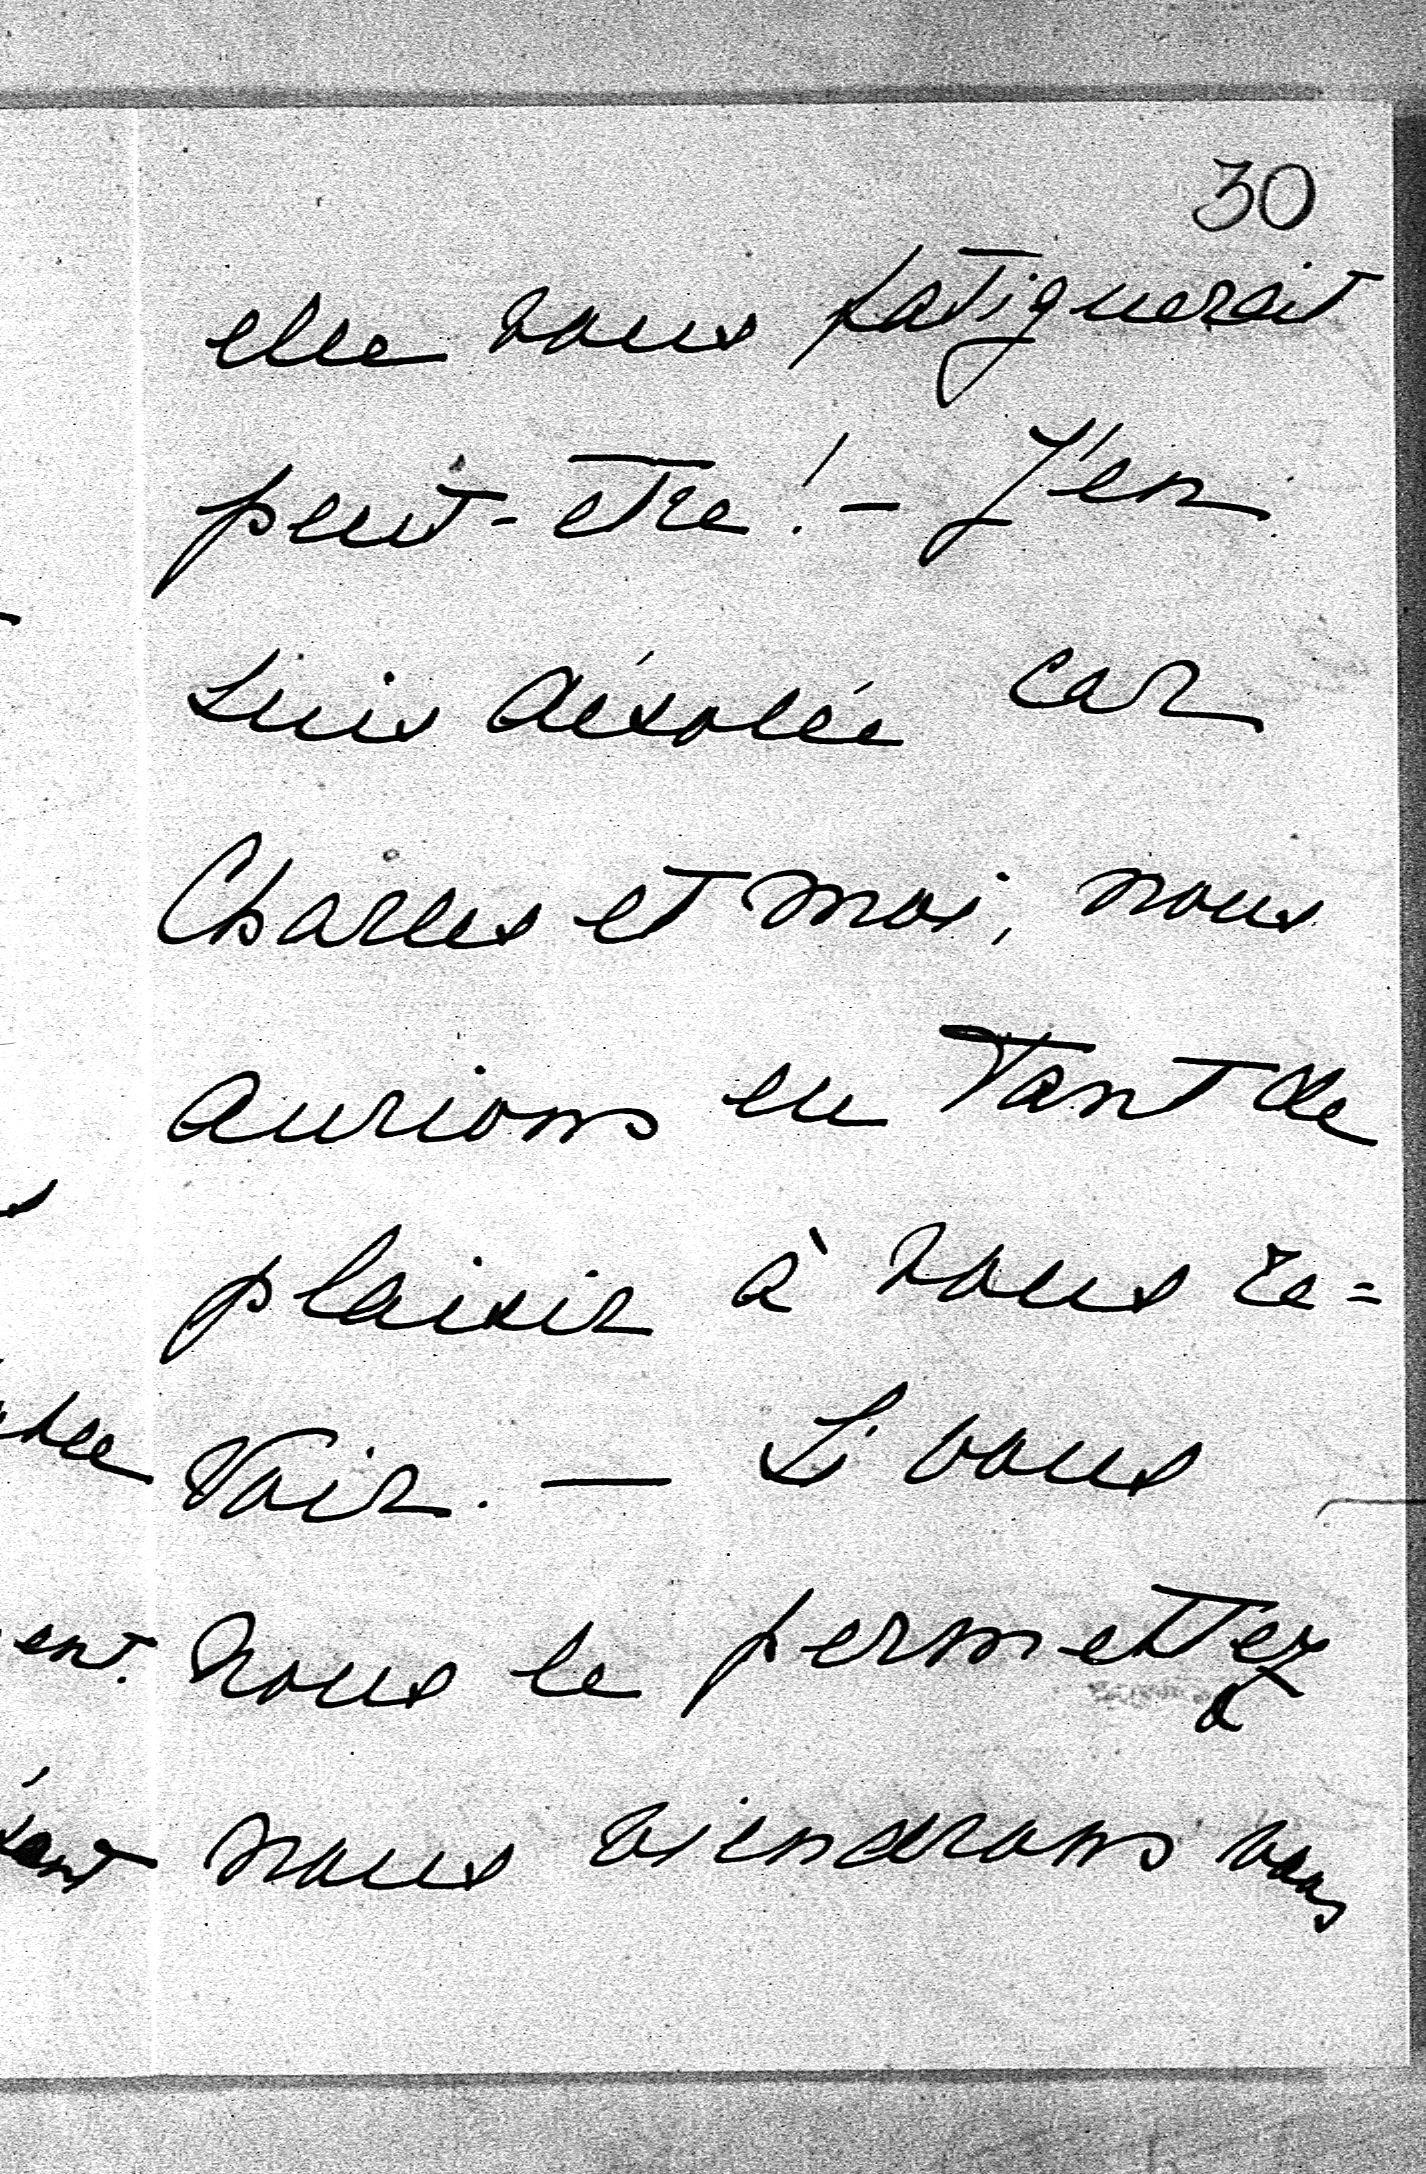 30
elle vous fatiguerait
peut-etre! - J'en
suis désolée car
Charles et moi, nous
aurions eu tant de
plaisir à vous re=
voir. — Si vous
nous le permettez
nous viendrons vous